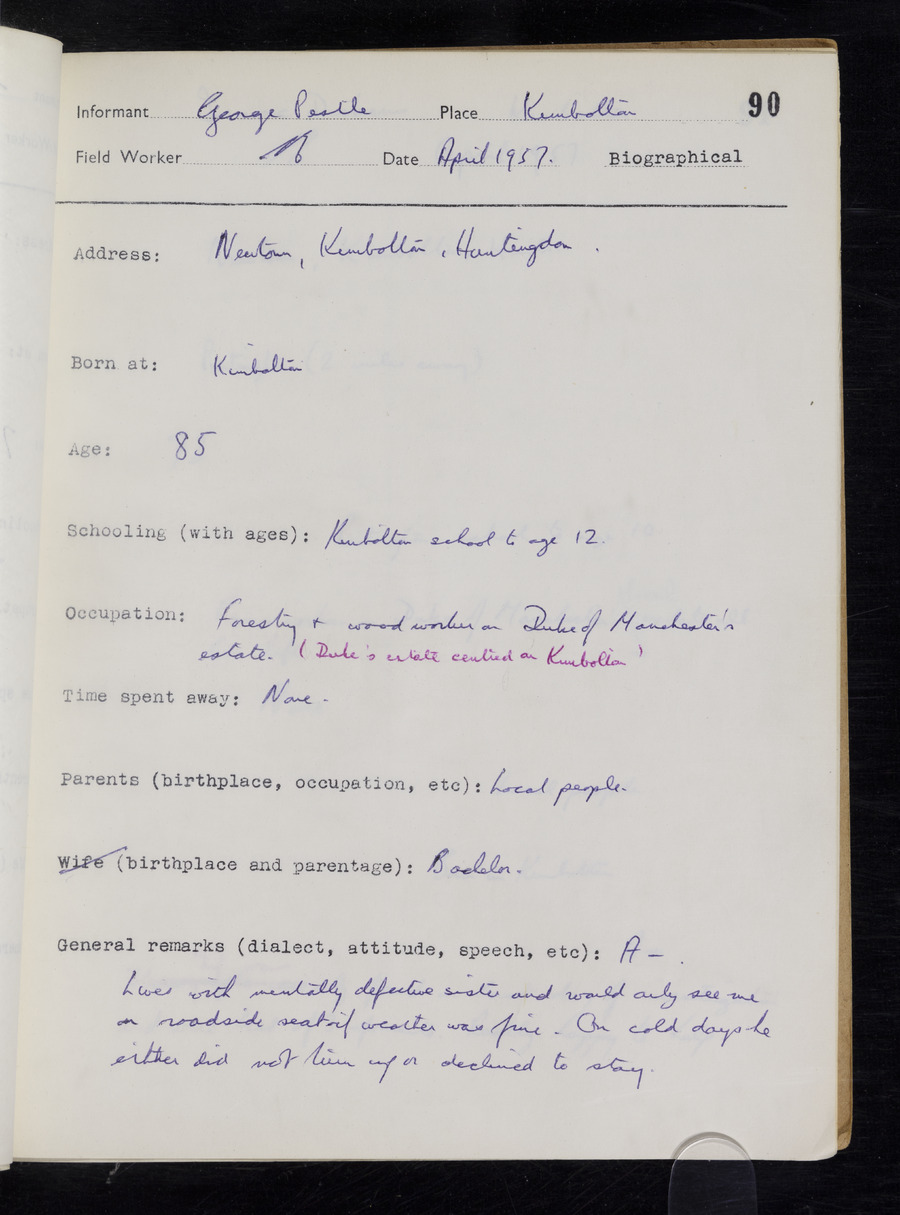 Informant George Pestle Place Kimbolton 90
Field Worker Date April 1957. Biographical
Address: Newtown, Kimbolton, Huntingdon.
Born at: Kimbolton
Age: 85
Schooling (with ages): Kimbolton school to age 12.
Occupation: Forestry + wood worker on Duke of Manchester's
estate. (Duke's estate centred on Kimbolton)
Time spent away: None.
Parents (birthplace, occupation, etc): Local people.
Wife (birthplace and parentage): Bachelor.
General remarks (dialect, attitude, speech, etc): A -
Lives with mentally defective sister and would only see me
on roadside seat if weather was fine. On cold days he
either did not turn up or declined to stay.